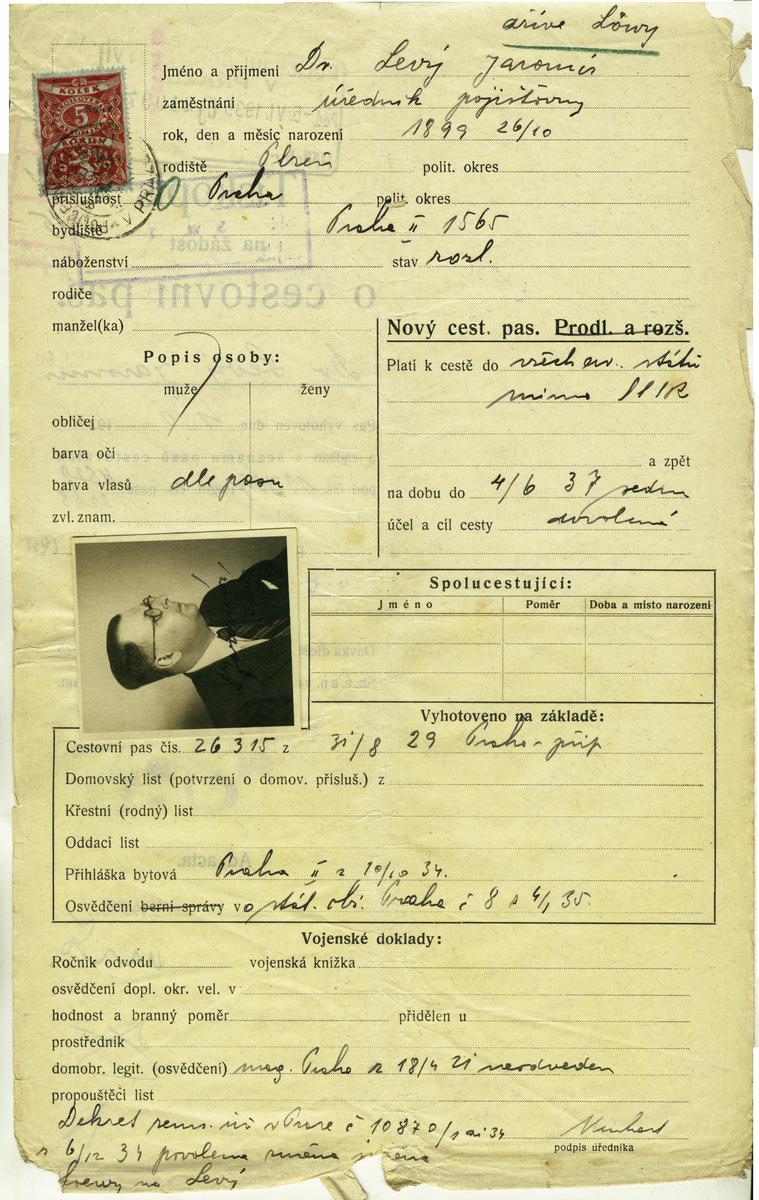 dříve Löwy
KOLEK
5
Jméno a přijmení Dr. Levý Jaromír
zaměstnání úředník pojišťovny
rok, den a měsíc narození 1899 26/10
rodiště Plzeň polit. okres
příslušnost Praha polit. okres
bydliště Praha II 1565
náboženství stav rozl.
rodiče
manžel(ka)
Popis osoby:
muže ženy
obličej
barva očí
barva vlasů dle pasu
zvl. znam.
Nový cest. pas. Prodl. a rozš.
Platí k cestě do všech ev. států
mimo
a zpět
na dobu do 4/6 37
účel a cíl cesty dovolená
Spolucestující:
Jméno Poměr Doba a místo narození
Vyhotoveno na základě:
Cestovní pas čís. 26315 z 31/8 29 Praha
Domovský list (potvrzení o domov. přísluš.) z
Křestní (rodný) list
Oddací list
Přihláška bytová Praha II z 10/10 34.
Osvědčení berní správy v o stát. obč. Praha č 8 z 4/1 35.
Vojenské doklady:
Ročník odvodu vojenská knížka
osvědčení dopl. okr. vel. v
hodnost a branný poměr přidělen u
prostředník
domobr. legit. (osvědčení) mag. Praha z 18/4 21 neodveden
propouštěcí list
Dekret zems. úř. v Praze č 10870/1 ai 34
z 6/12 34 povolena změna jména
na Levý
podpis úředníka